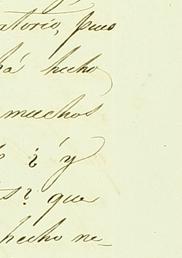 atorio, pues
há hecho
muchos
? ¿ y
s? que
hecho ne-